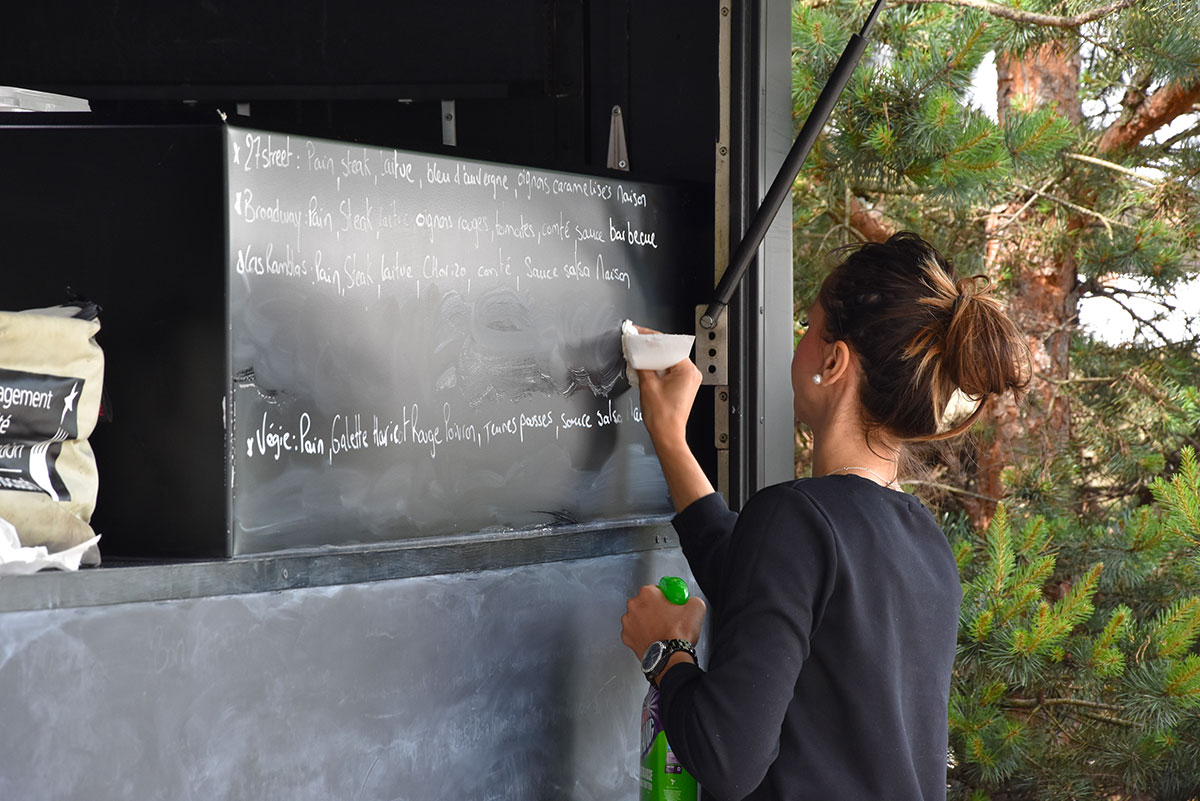 * 27street : Pain, steak, laitue, bleu d'auvergne, oignons caramelisés Maison
* Broadway : Pain, Steak, laitue oignons rouges, tomates, comté, sauce barbecue
* Las Ramblas : Pain, Steak, laitue, Chorizo, comté, Sauce salsa Maison
* Végie : Pain, Galette Haricot Rouge Poivron, sauce salsa
agement